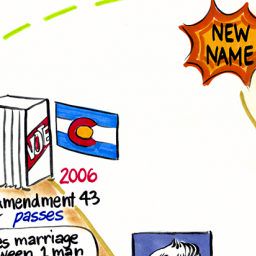 NEW
NAME
VOTE
2006
amendment 43
passes
marriage
1 man